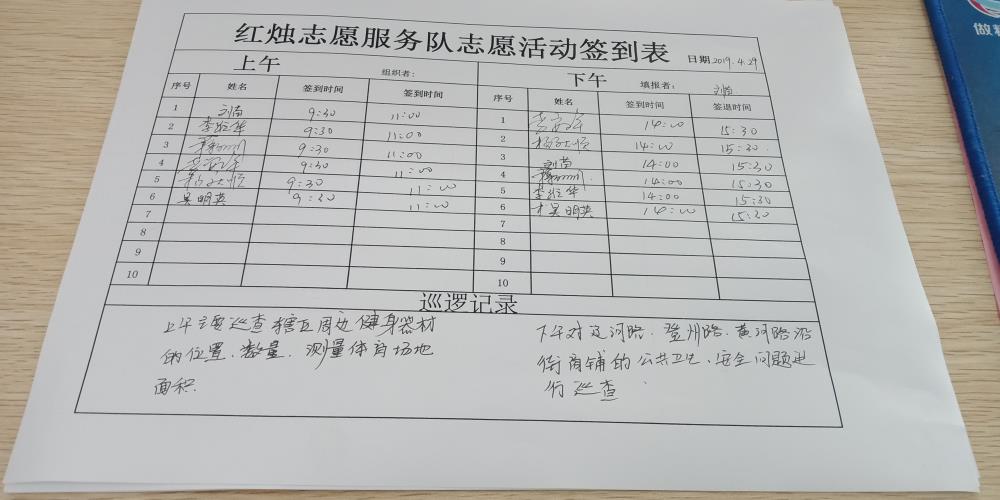 红烛志愿服务队志愿活动签到表
日期2019.4.29
上午 组织者：
下午 填报者：
序号 姓名 签到时间 签到时间
1 9:30 11:00
2 李 华 9:30 11:00
3 9:30 11:00
4 9:30 11:00
5 9:30 11:00
6 吴明英 9:30 11:00
7
8
9
10
序号 姓名 签到时间 签退时间
1 14:00 15:30
2 14:00 15:30
3 14:00 15:30
4 14:00 15:30
5 李 华 14:00 15:30
6 吴明英 14:00 15:30
7
8
9
10
巡逻记录
上午主要巡查辖区周边健身器材
的位置、数量、测量体育场地
面积.
下午对辽河路、登州路、黄河路沿
街商铺的公共卫生、安全问题进
行巡查.
做